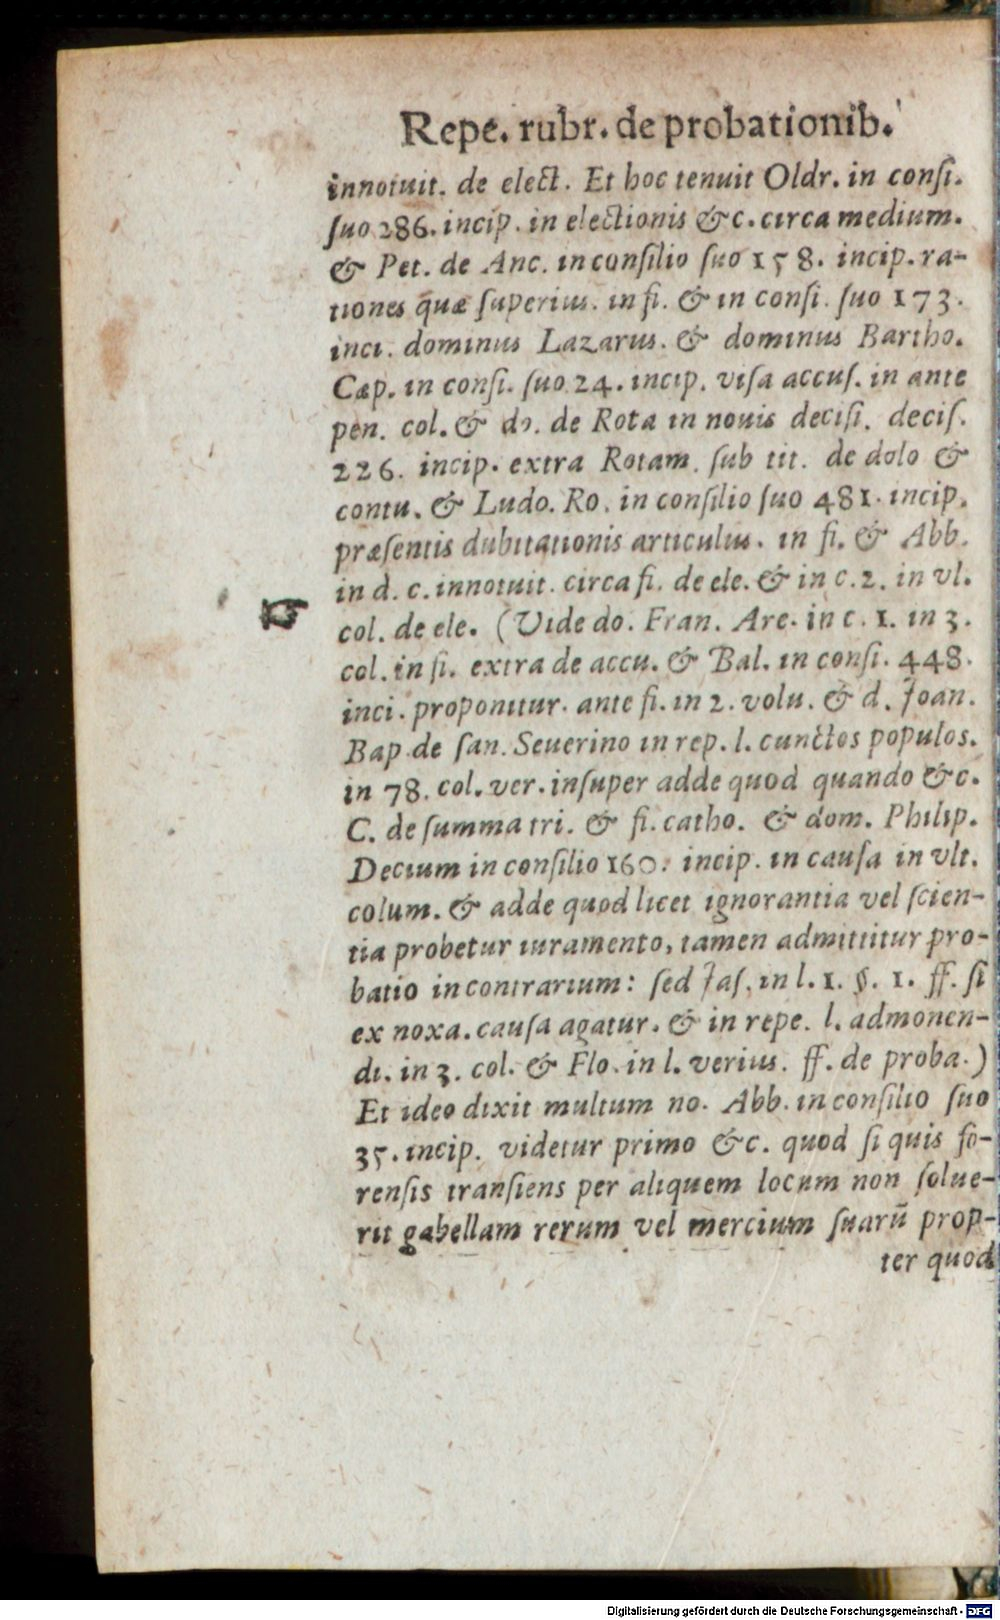 Repe. rubr. de probationib.
innotuit. de elect. Et hoc tenuit Oldr. in consi.
suo 286. incip. in electionis &c. circa medium.
& Pet. de Anc. in consilio suo 158. incip. ra-
tiones quæ superius. in fi. & in consi. suo 173.
inci. dominus Lazarus. & dominus Bartho.
Cæp. in consi. suo 24. incip. visa accus. in ante
pen. col. & do. de Rota in nouis decisi. decis.
226. incip. extra Rotam. sub tit. de dolo &
contu. & Ludo. Ro. in consilio suo 481. incip.
præsentis dubitationis articulus. in fi. & Abb.
in d. c. innotuit. circa fi. de ele. & in c. 2. in vl.
☞ col. de ele. (Vide do. Fran. Are. in c. 1. in 3.
col. in fi. extra de accu. & Bal. in consi. 448.
inci. proponitur. ante fi. in 2. volu. & d. Joan.
Bap. de san. Seuerino in rep. l. cunctos populos.
in 78. col. ver. insuper adde quod quando &c.
C. de summa tri. & fi. catho. & dom. Philip.
Decium in consilio 160. incip. in causa in vlt.
colum. & adde quod licet ignorantia vel scien-
tia probetur iuramento, tamen admittitur pro-
batio in contrarium: sed Jas. in l. 1. §. 1. ff. si
ex noxa. causa agatur. & in repe. l. admonen-
di. in 3. col. & Flo. in l. verius. ff. de proba.)
Et ideo dixit multum no. Abb. in consilio suo
35. incip. videtur primo &c. quod si quis fo-
rensis transiens per aliquem locum non solue-
rit gabellam rerum vel mercium suarū prop-
ter quod
Digitalisierung gefördert durch die Deutsche Forschungsgemeinschaft - DFG